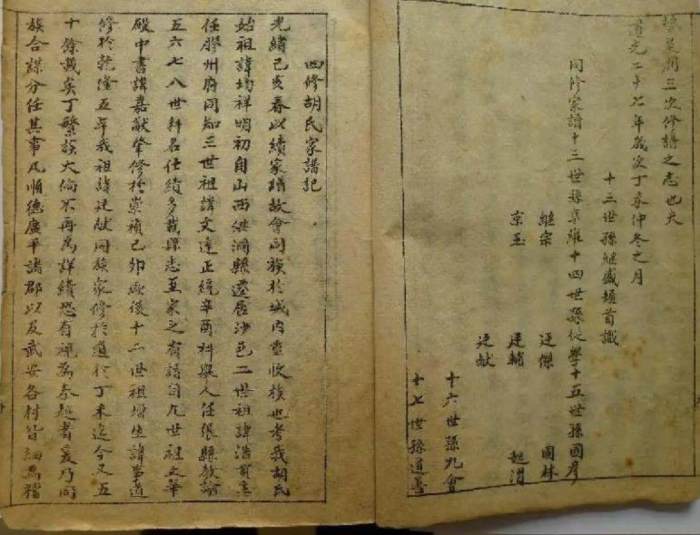 為吾胡三次修譜之志也夫
道光二十七年歲次丁未仲冬之月
十三世孫繼盛頓首識
同修家譜十三世孫 十四世孫從學十五世孫國彥
繼宗 廷傑 國林
京玉 廷輔 起渭
廷猷
十六世孫九會
十七世孫道善
四修胡氏家譜記
光緒己亥春以續家譜故會同族於城內重收族也考我胡氏
始祖諱均祥明初自山西洪洞縣遷居沙邑二世祖諱浩
任膠州府同知三世祖諱文達正統辛酉科舉人任 縣教諭
五六七八世科名仕績多載縣志至家之有譜自九世祖文華
殿中書諱嘉猷肇修於崇禎己卯厥後十二世祖增生諱 遠
修於乾隆五年我祖諱廷猷同族家修於道光丁未迄今又五
十餘載矣丁繁族大倘不再為詳續恐有視為秦越者爰乃同
族合謀分任其事凡順德廣平諸郡以及武安各村皆細為稽